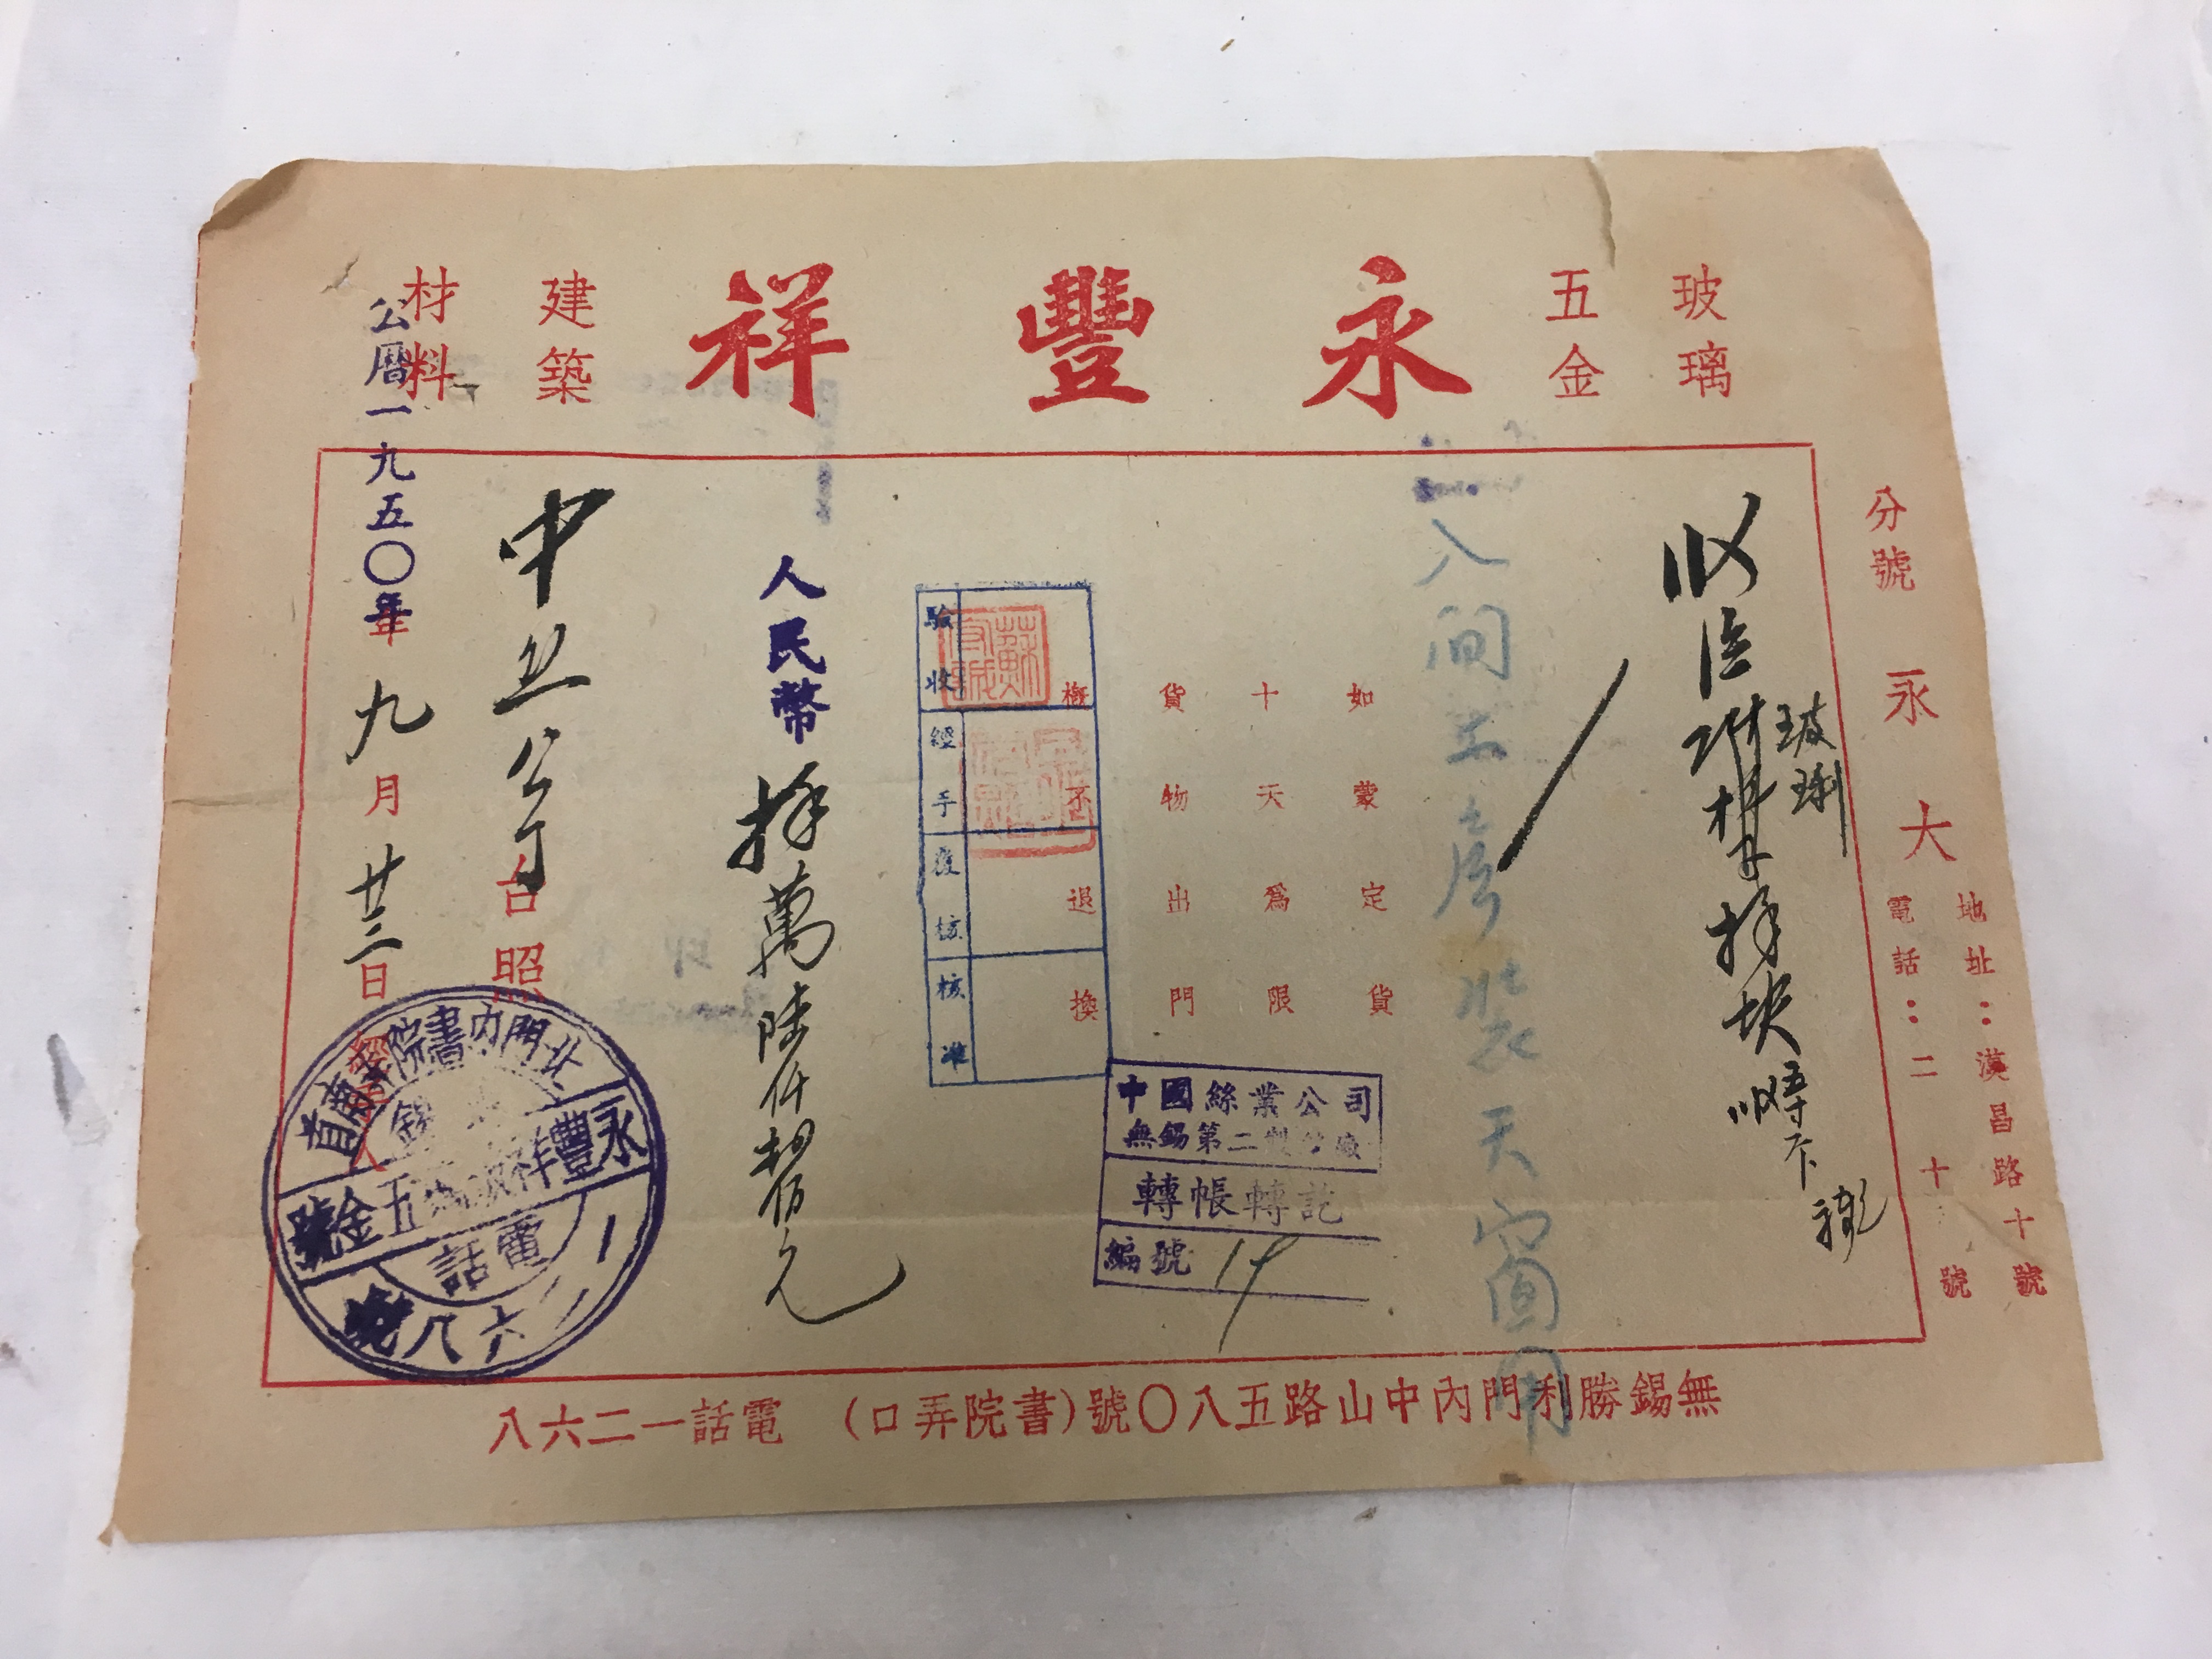 永豐祥
玻璃
五金
建築
材料
分號
永大
地址：漢昌路十號
電話：二十號
收
玻璃
如蒙定貨
十天為限
貨物出門
概不退換
驗收
經手
覆核
核准
中國絲業公司
無錫第二製絲廠
轉帳轉訖
編號
人民幣拾萬陸仟
元
中絲公司台照
公曆一九五〇年九月廿三日
北門內書院弄南首
永豐祥玻璃五金號
電話
一二六八
無錫勝利門內中山路五八〇號(書院弄口) 電話一二六八